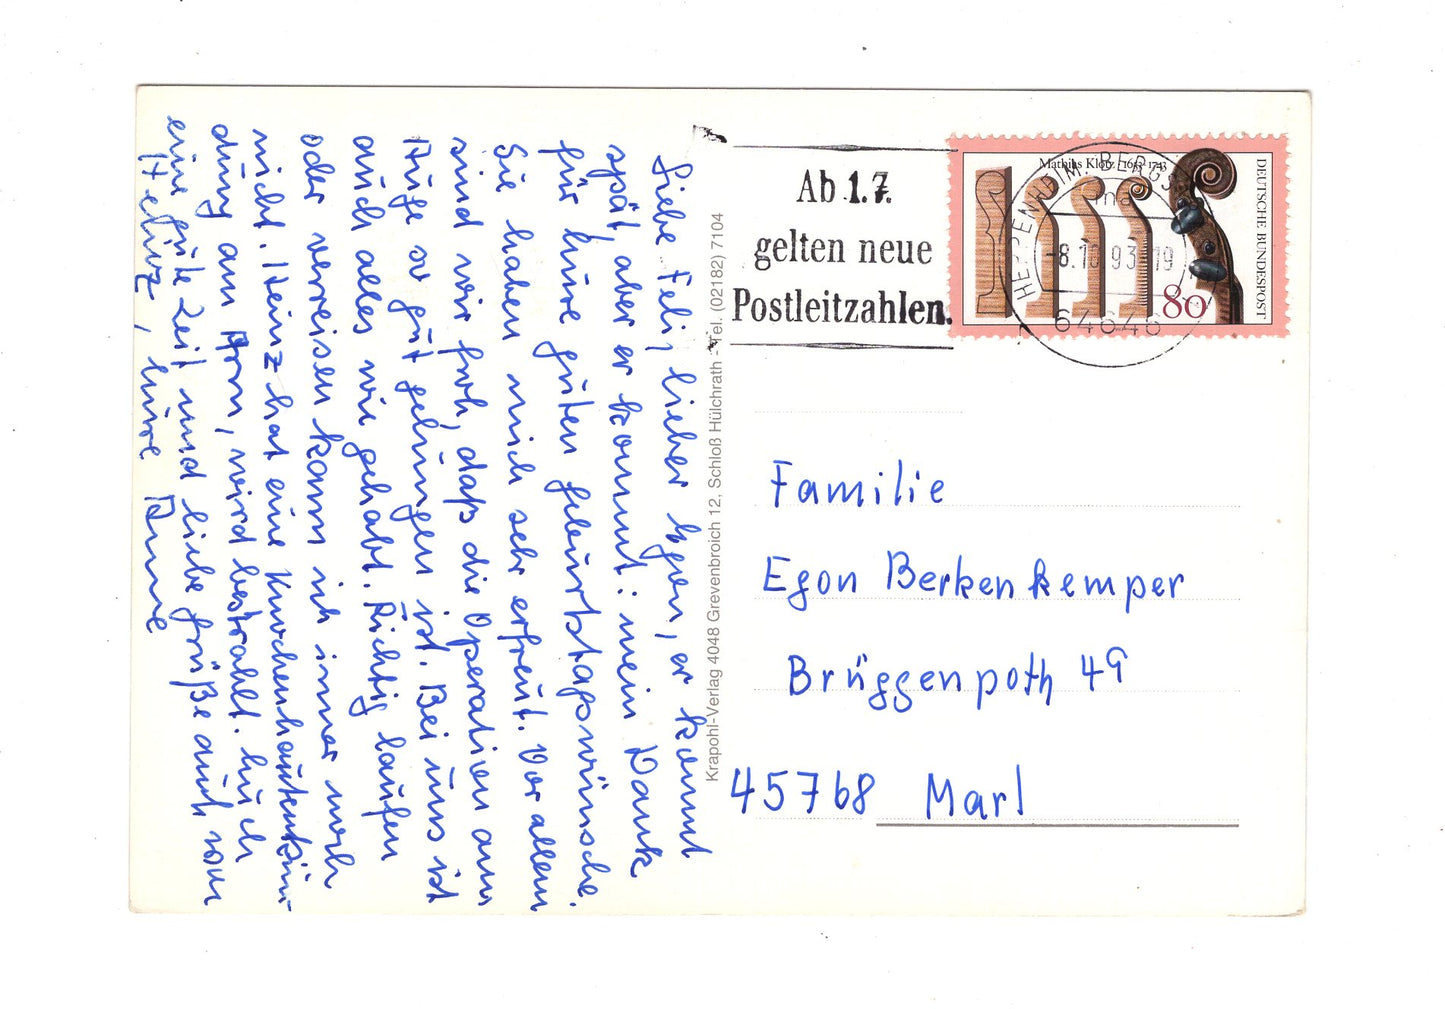 Liebe Feli, lieber Egon, er kommt
spät, aber er kommt: mein Dank
für Eure guten Geburtstagswünsche.
Sie haben mich sehr erfreut. Vor allem
sind wir froh, daß die Operation am
Auge so gut gelungen ist. Bei uns ist
auch alles wie gehabt. Richtig laufen
oder verreisen kann ich immer noch
nicht. Heinz hat eine Knochenhautentzün-
dung am Arm, wird bestrahlt. Euch
eine gute Zeit und liebe Grüße auch von
Heinz, Eure Anne
Krapohl-Verlag 4048 Grevenbroich 12, Schloß Hülchrath - Tel. (02182) 7104
Ab 1.7.
gelten neue
Postleitzahlen.
Mathias Klotz 1653-1743
DEUTSCHE BUNDESPOST
80
HEPPENHEIM, BERGSTR
ma
-8.10.93-19
64646
Familie
Egon Berkenkemper
Brüggenpoth 49
45768 Marl